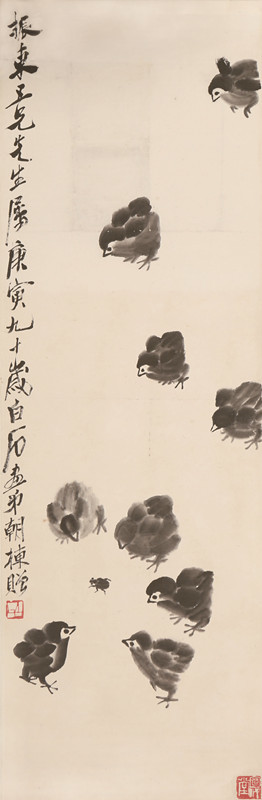 振東吾兄先生屬庚寅九十歲白石畫弟朝棟贈